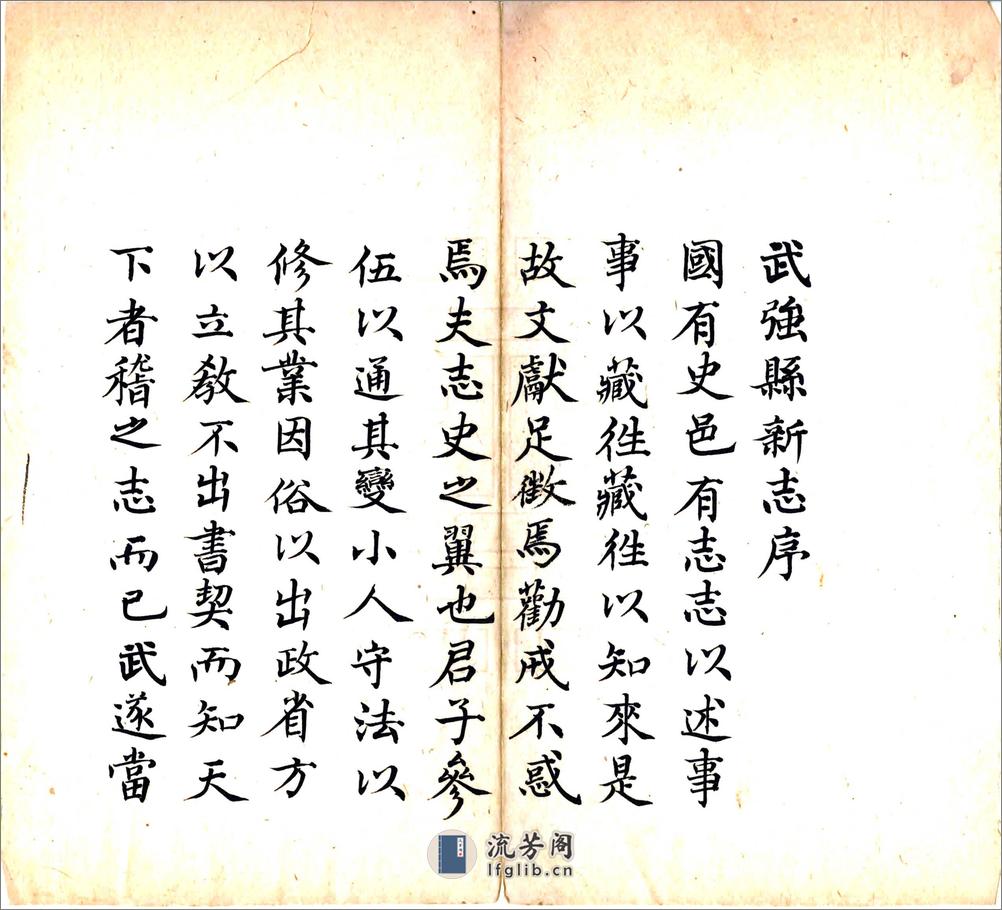 武強縣新志序
國有史邑有志志以述事
事以藏徃藏徃以知來是
故文獻足徴焉勸戒不惑
焉夫志史之翼也君子參
伍以通其變小人守法以
修其業因俗以出政省方
以立教不出書契而知天
下者稽之志而已武遂當
流芳阁
lfglib.cn